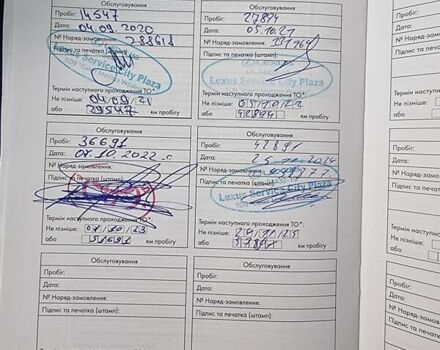 Обслуговування
Пробіг: 14547
Дата: 04.09.2020
№ Наряд-замовлення: 288618
Підпис та печатка (штамп):
Lexus Service City Plaza
Термін наступного проходження ТО*:
Не пізніше: 04/09/21
або 29547 км пробігу
Обслуговування
Пробіг: 27814
Дата: 05.10.21
№ Наряд-замовлення:
Підпис та печатка (штамп):
Lexus Service City Plaza
Термін наступного проходження ТО*:
Не пізніше: 05/10/22
або 42814 км пробігу
Обслуговування
Пробіг: 36691
Дата: 07.10.2022
№ Наряд-замовлення:
Підпис та печатка (штамп):
Термін наступного проходження ТО*:
Не пізніше: 07/10/23
або 51691 км пробігу
Обслуговування
Пробіг: 42891
Дата:
№ Наряд-замовлення:
Підпис та печатка (штамп):
Lexus Service City Plaza
Термін наступного проходження ТО*:
Не пізніше:
або 57891 км пробігу
Обслуговування
Пробіг:
Дата:
№ Наряд-замовлення:
Підпис та печатка (штамп):
Обслуговування
Пробіг:
Дата:
№ Наряд-замовлення:
Підпис та печатка (штамп):